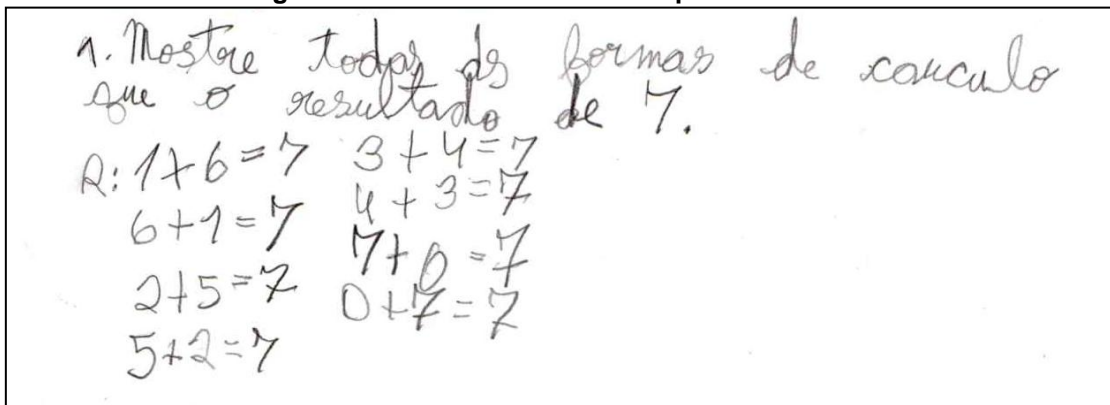 1. Mostre todas as formas de caucculo
que o resultado de 7.
R: 1+6=7
6+1=7
2+5=7
5+2=7
3+4=7
4+3=7
7+0=7
0+7=7